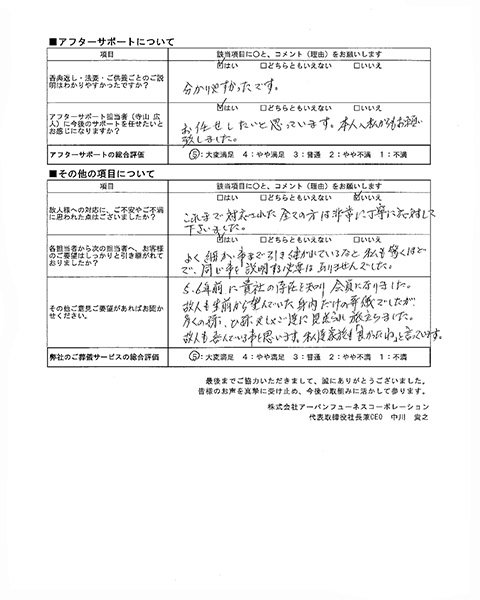 ■アフターサポートについて
項目 該当項目に〇と、コメント（理由）をお願いします
香典返し・法要・ご供養ごとのご説明はわかりやすかったですか？
☑はい □どちらともいえない □いいえ
分かりやすかったです。
アフターサポート担当者（寺山 広人）に今後のサポートを任せたいとお感じになりますか？
☑はい □どちらともいえない □いいえ
お任せしたいと思っています。本人へ私からもお願い
致しました。
アフターサポートの総合評価 ⑤：大変満足 4：やや満足 3：普通 2：やや不満 1：不満
■その他の項目について
項目 該当項目に〇と、コメント（理由）をお願いします
故人様への対応に、ご不安やご不満に思われた点はございましたか？
□はい □どちらともいえない ☑いいえ
これまで対応された全ての方は非常に丁寧に応対して
下さいました。
各担当者から次の担当者へ、お客様のご要望はしっかりと引き継がれておりましたか？
☑はい □どちらともいえない □いいえ
よく細かい事まで引き継がれているなと私も驚くほど
で、同じ事を説明する必要はありませんでした。
その他ご意見ご要望があればお聞かせください。
5、6年前に貴社の存在を知り会員になりました。
故人も生前から望んでいた身内だけの葬儀でしたが
多くの孫、ひ孫 に見送られ旅立ちました。
故人も喜んでいる事と思います。私達家族も「良かったね」と言っています。
弊社のご葬儀サービスの総合評価 ⑤：大変満足 4：やや満足 3：普通 2：やや不満 1：不満
最後までご協力いただきまして、誠にありがとうございました。
皆様のお声を真摯に受け止め、今後の取組みに活かして参ります。
株式会社アーバンフューネスコーポレーション
代表取締役社長兼CEO 中川 貴之